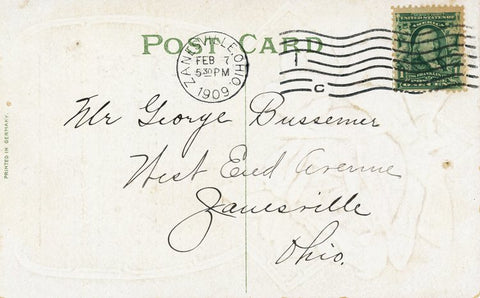 POST CARD
ZANESVILLE, OHIO
FEB 7
5 30 PM
1909
C
UNITED STATES OF
AMERICA
FRANKLIN
PRINTED IN GERMANY.
Mr George Bussemer
West End Avenue
Zanesville
Ohio.